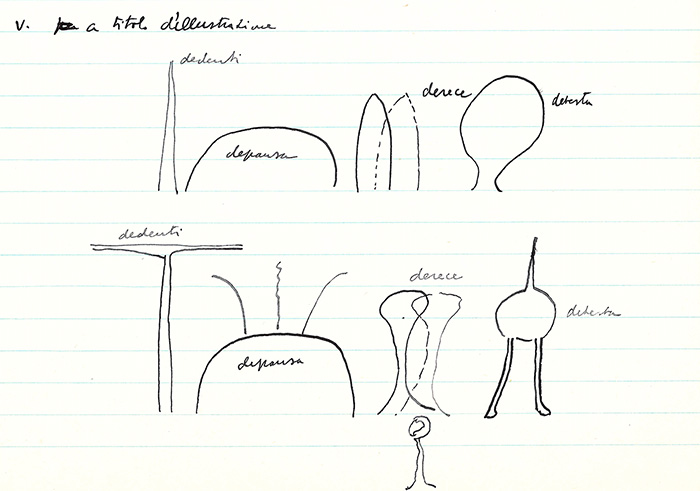 V. a titolo d'illustrazione
dedenti
depausa
derece
detesta
dedenti
depausa
derece
detesta